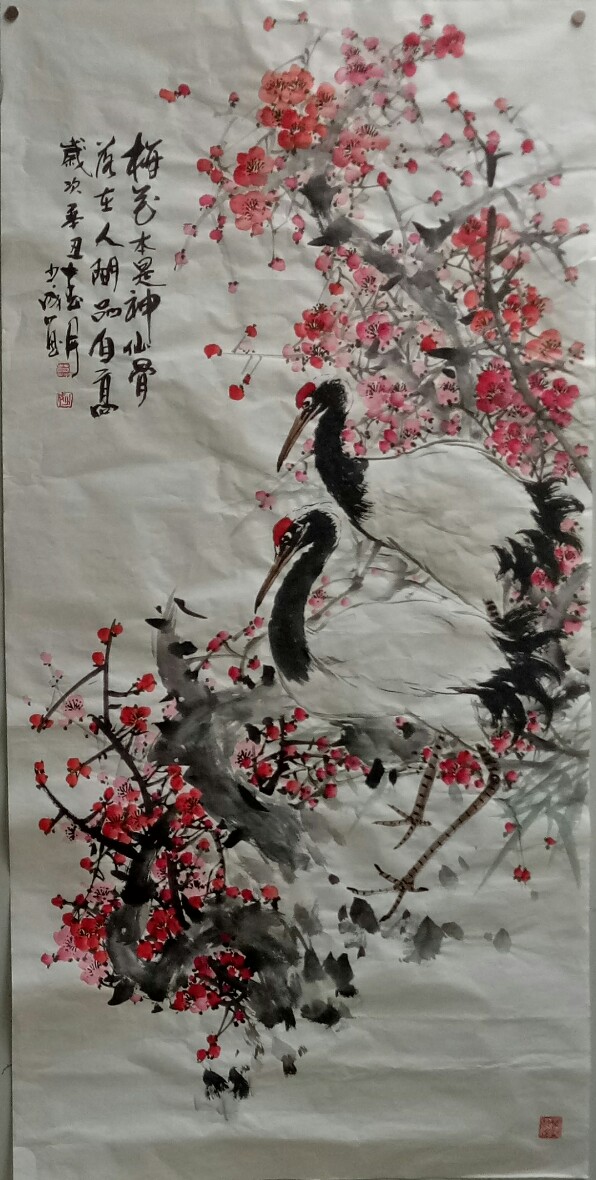 梅花本是神仙骨
落在人间品自高
岁次辛丑十壹月